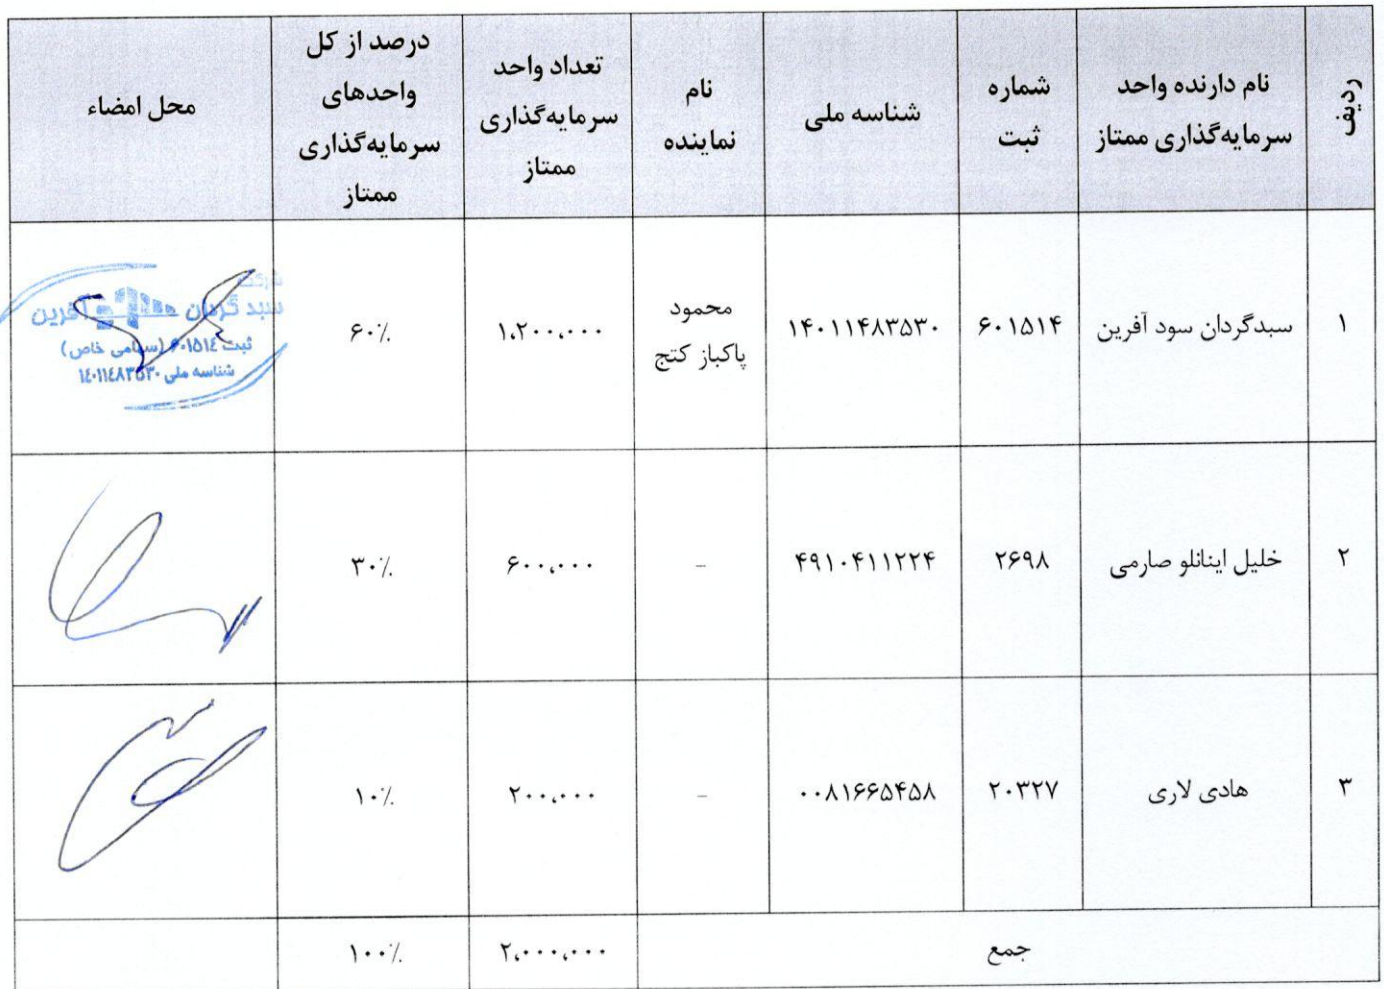 ردیف
نام دارنده واحد
سرمایه‌گذاری ممتاز
شماره
ثبت
شناسه ملی
نام
نماینده
تعداد واحد
سرمایه‌گذاری
ممتاز
درصد از کل
واحدهای
سرمایه‌گذاری
ممتاز
محل امضاء
۱
سبدگردان سود آفرین
۶۰۱۵۱۴
۱۴۰۱۱۴۸۳۵۳۰
محمود
پاکباز کتج
۱،۲۰۰،۰۰۰
۶۰٪
شرکت
سبد گردان سود آفرین
ثبت ۶۰۱۵۱٤ (سهامی خاص)
شناسه ملی ۱٤۰۱۱٤۸۳۵۳۰
۲
خلیل اینانلو صارمی
۲۶۹۸
۴۹۱۰۴۱۱۲۲۴
–
۶۰۰،۰۰۰
۳۰٪
۳
هادی لاری
۲۰۳۲۷
۰۰۸۱۶۶۵۴۵۸
–
۲۰۰،۰۰۰
۱۰٪
جمع
۲،۰۰۰،۰۰۰
۱۰۰٪